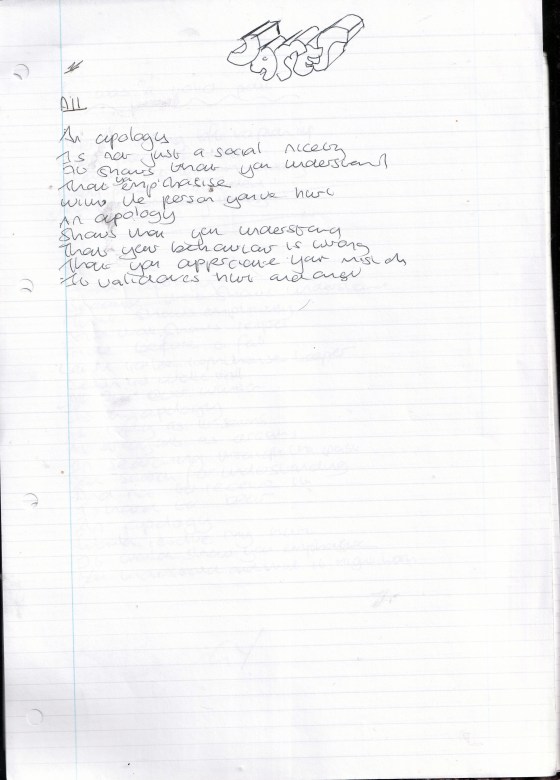 JAMES
All
An apology
Is not just a social nicety
It shows that you understand
That you emphasise
With the person you've hurt
An apology
Shows that you understand
That your behaviour is wrong
That you appreciate your
It validates hurt and anger